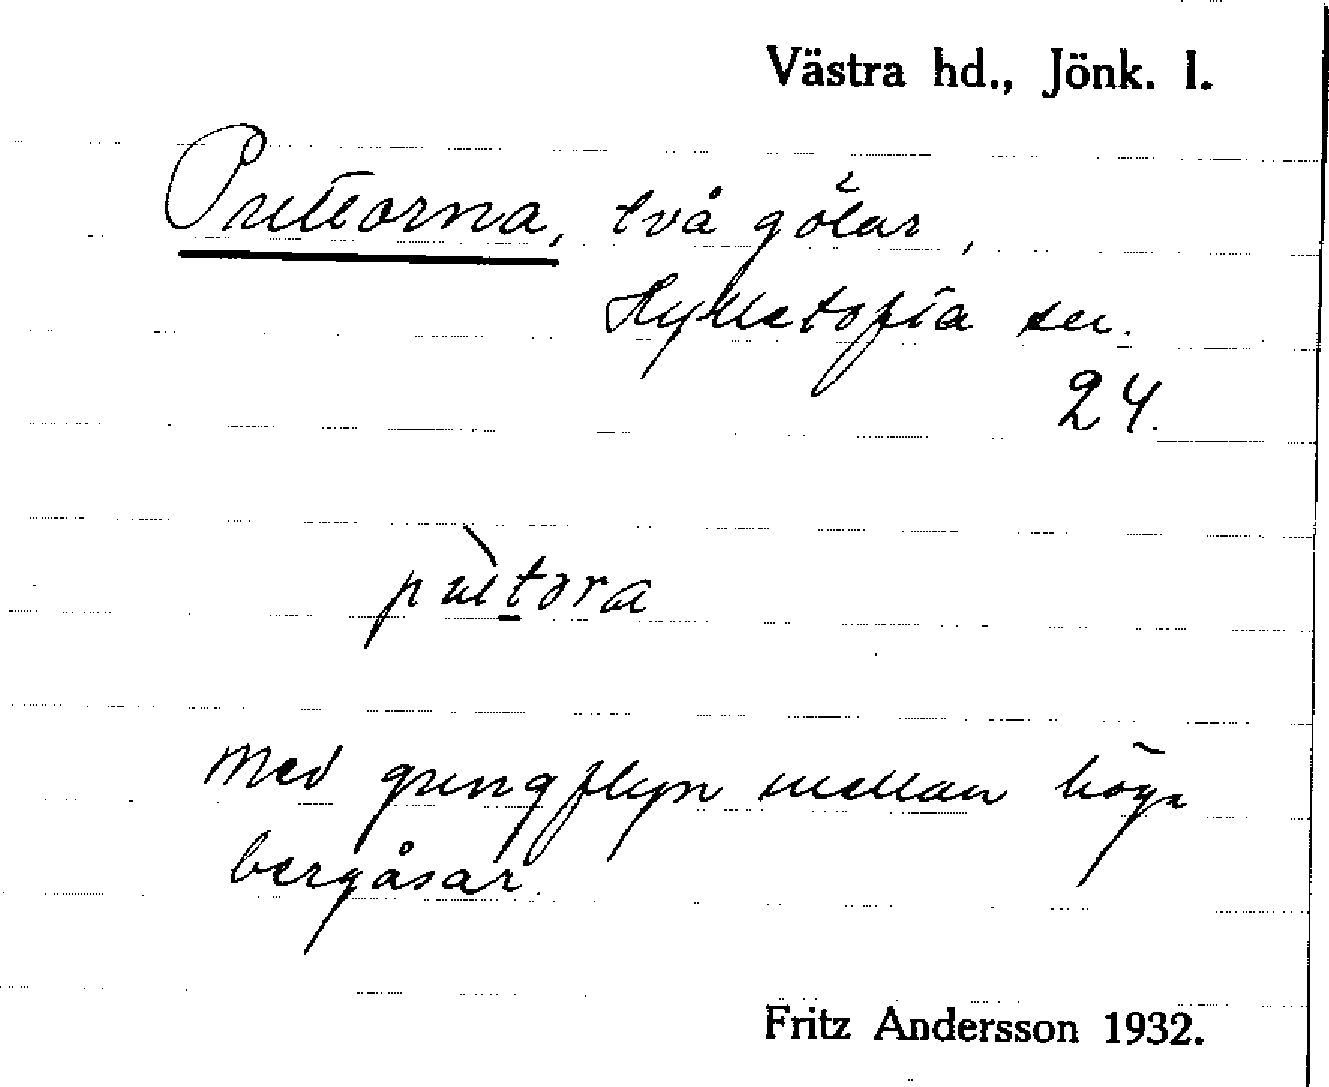 Västra hd., Jönk. l.
Puttorna, två gölar,
Hylletofta sn.
24.
pùtora
Med gungflyn mellan höga
bergåsar.
Fritz Andersson 1932.